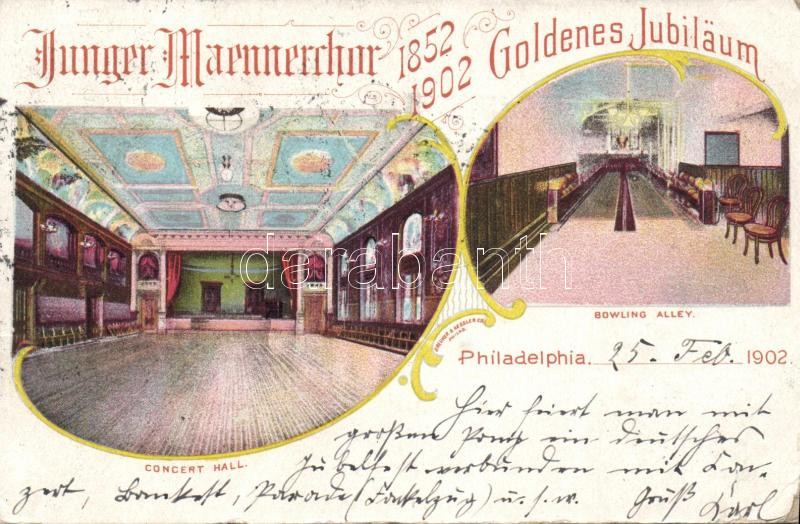 Junger Maennerchor 1852 1902 Goldenes Jubiläum
darabanth
BOWLING ALLEY.
Philadelphia. 25. Feb. 1902.
CONCERT HALL.
Hier feiert man mit
großem Pomp ein deutsches
Jubelfest verbunden mit Kon-
zert, Bankett, Parade (Fackelzug) u. s. w. Gruß
Karl